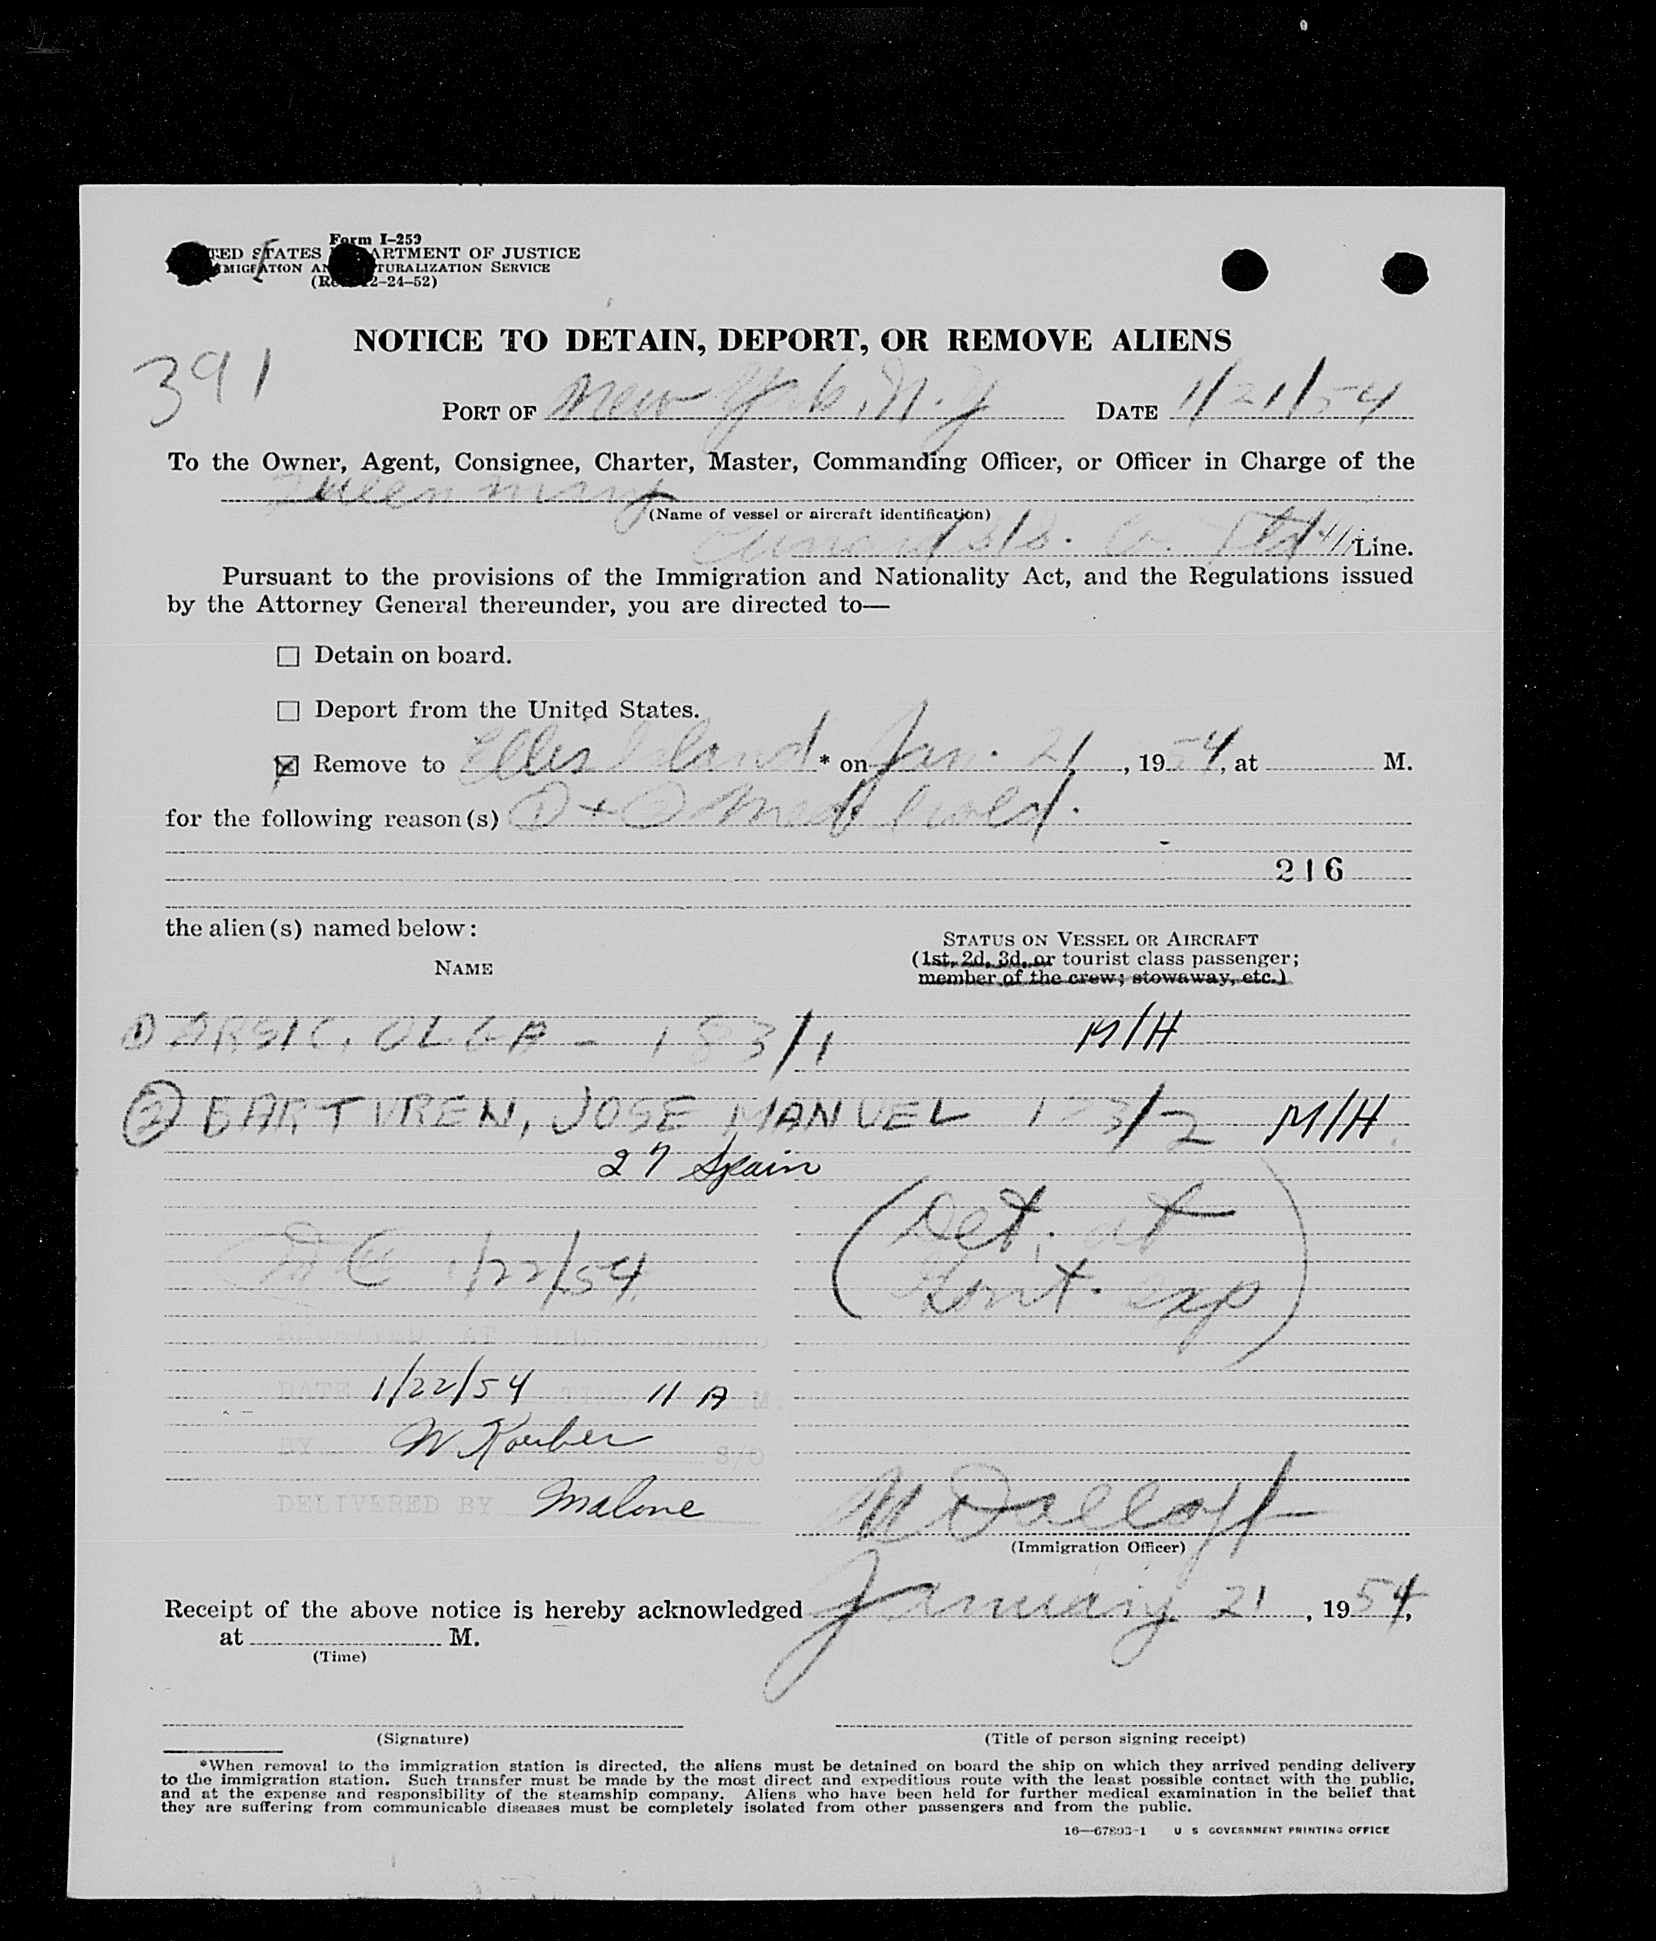 Form I-259
UNITED STATES DEPARTMENT OF JUSTICE
IMMIGRATION AND NATURALIZATION SERVICE
(Rev. 12-24-52)
NOTICE TO DETAIN, DEPORT, OR REMOVE ALIENS
391
PORT OF New York, N.Y DATE 1/21/54
To the Owner, Agent, Consignee, Charter, Master, Commanding Officer, or Officer in Charge of the
Queen Mary
(Name of vessel or aircraft identification)
Cunard S/S. Co. Ltd Line.
Pursuant to the provisions of the Immigration and Nationality Act, and the Regulations issued
by the Attorney General thereunder, you are directed to—
☐ Detain on board.
☐ Deport from the United States.
☒ Remove to Ellis Island * on Jan. 21, 1954, at M.
for the following reason(s) ① + ② Med hold.
216
the alien(s) named below:
STATUS ON VESSEL OR AIRCRAFT
(1st, 2d, 3d, or tourist class passenger;
member of the crew; stowaway, etc.)
NAME
① ARSIC, OLGA - 183/1 M/H
② BARTUREN, JOSE MANUEL 123/2 M/H
27 Spain
(Det. at
Govt. Exp)
1/22/54
DATE 1/22/54 TIME 11 A M.
BY W Koerber S/O
DELIVERED BY Malone
(Immigration Officer)
Receipt of the above notice is hereby acknowledged January 21, 1954,
at M.
(Time)
(Signature) (Title of person signing receipt)
*When removal to the immigration station is directed, the aliens must be detained on board the ship on which they arrived pending delivery
to the immigration station. Such transfer must be made by the most direct and expeditious route with the least possible contact with the public,
and at the expense and responsibility of the steamship company. Aliens who have been held for further medical examination in the belief that
they are suffering from communicable diseases must be completely isolated from other passengers and from the public.
16—67803-1 U S GOVERNMENT PRINTING OFFICE